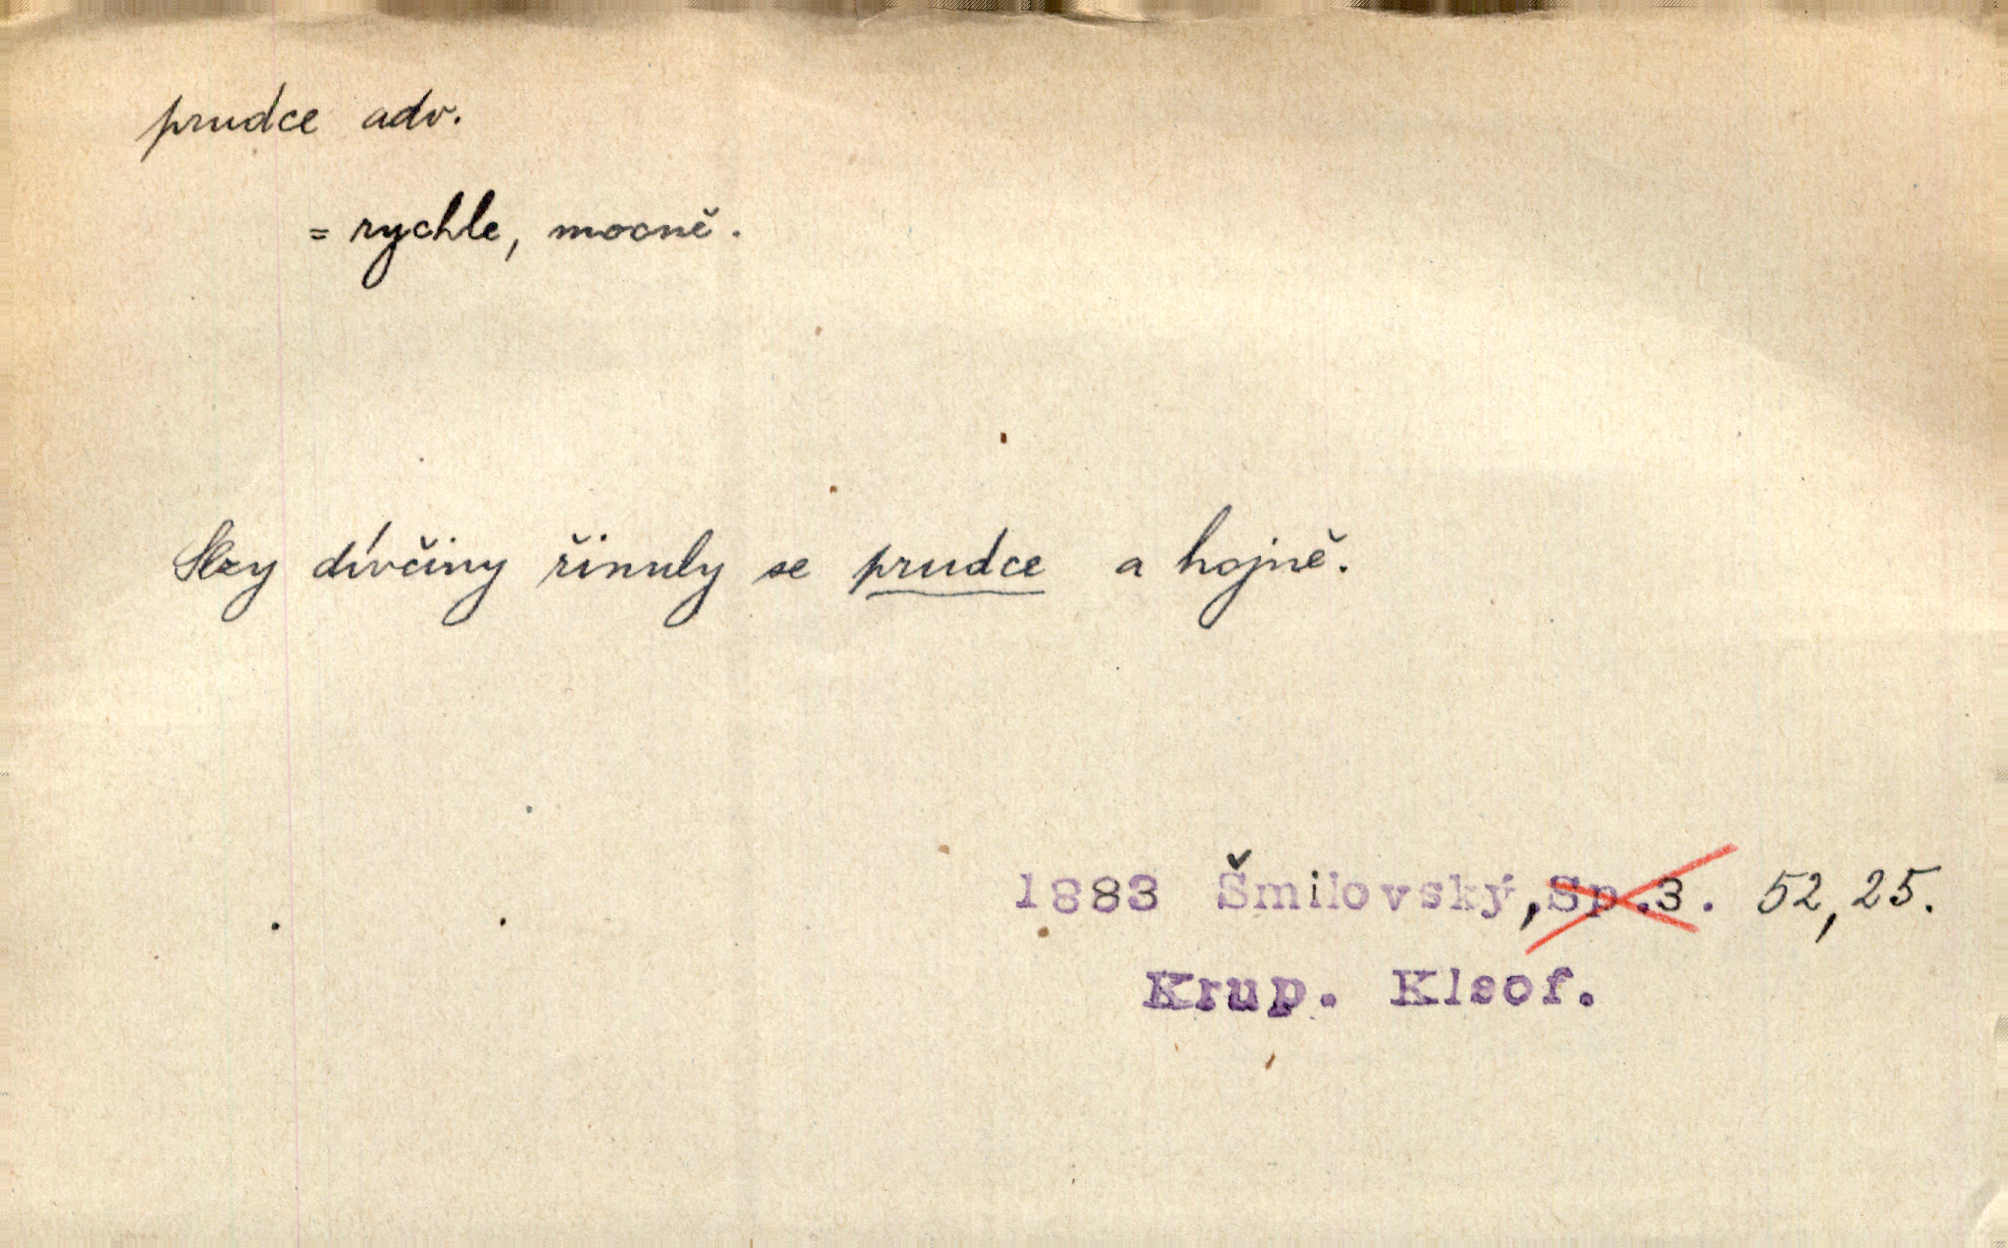 prudce adv.
= rychle, mocně.
Slzy dívčiny řinuly se prudce a hojně.
1883 Šmilovský, Sp.3. 52,25.
Krup. Kleof.